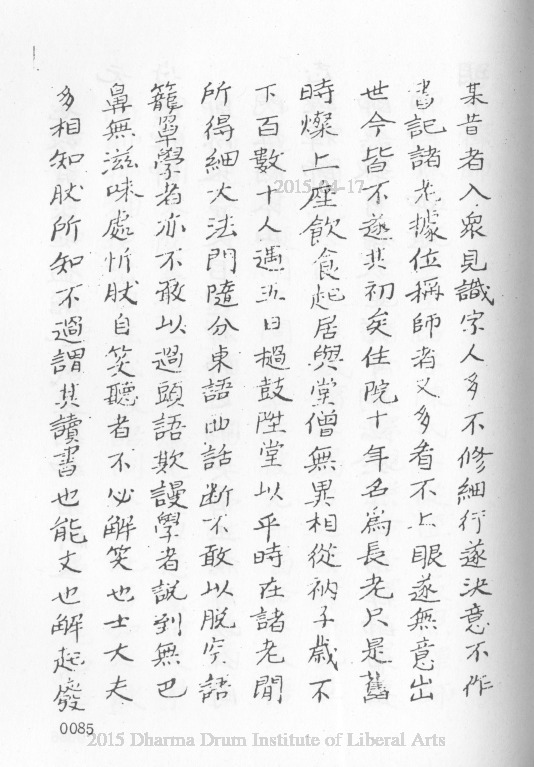 某昔者入衆見識字人多不修細行遂決意不作
書記諸老據位稱師者又多看不上眼遂無意出
世今皆不遂其初矣住院十年名為長老只是舊
時燦上座飲食起居與堂僧無異相從衲子歲不
下百數十人遇五日撾鼓陞堂以平時在諸老間
所得細大法門隨分東語西話斷不敢以脫空語
籠罩學者亦不敢以過頭語欺謾學者說到無巴
鼻無滋味處忻肰自笑聽者不必解笑也士大夫
多相知肰所知不過謂其讀書也能文也解起廢
0085
2015-04-17
2015 Dharma Drum Institute of Liberal Arts